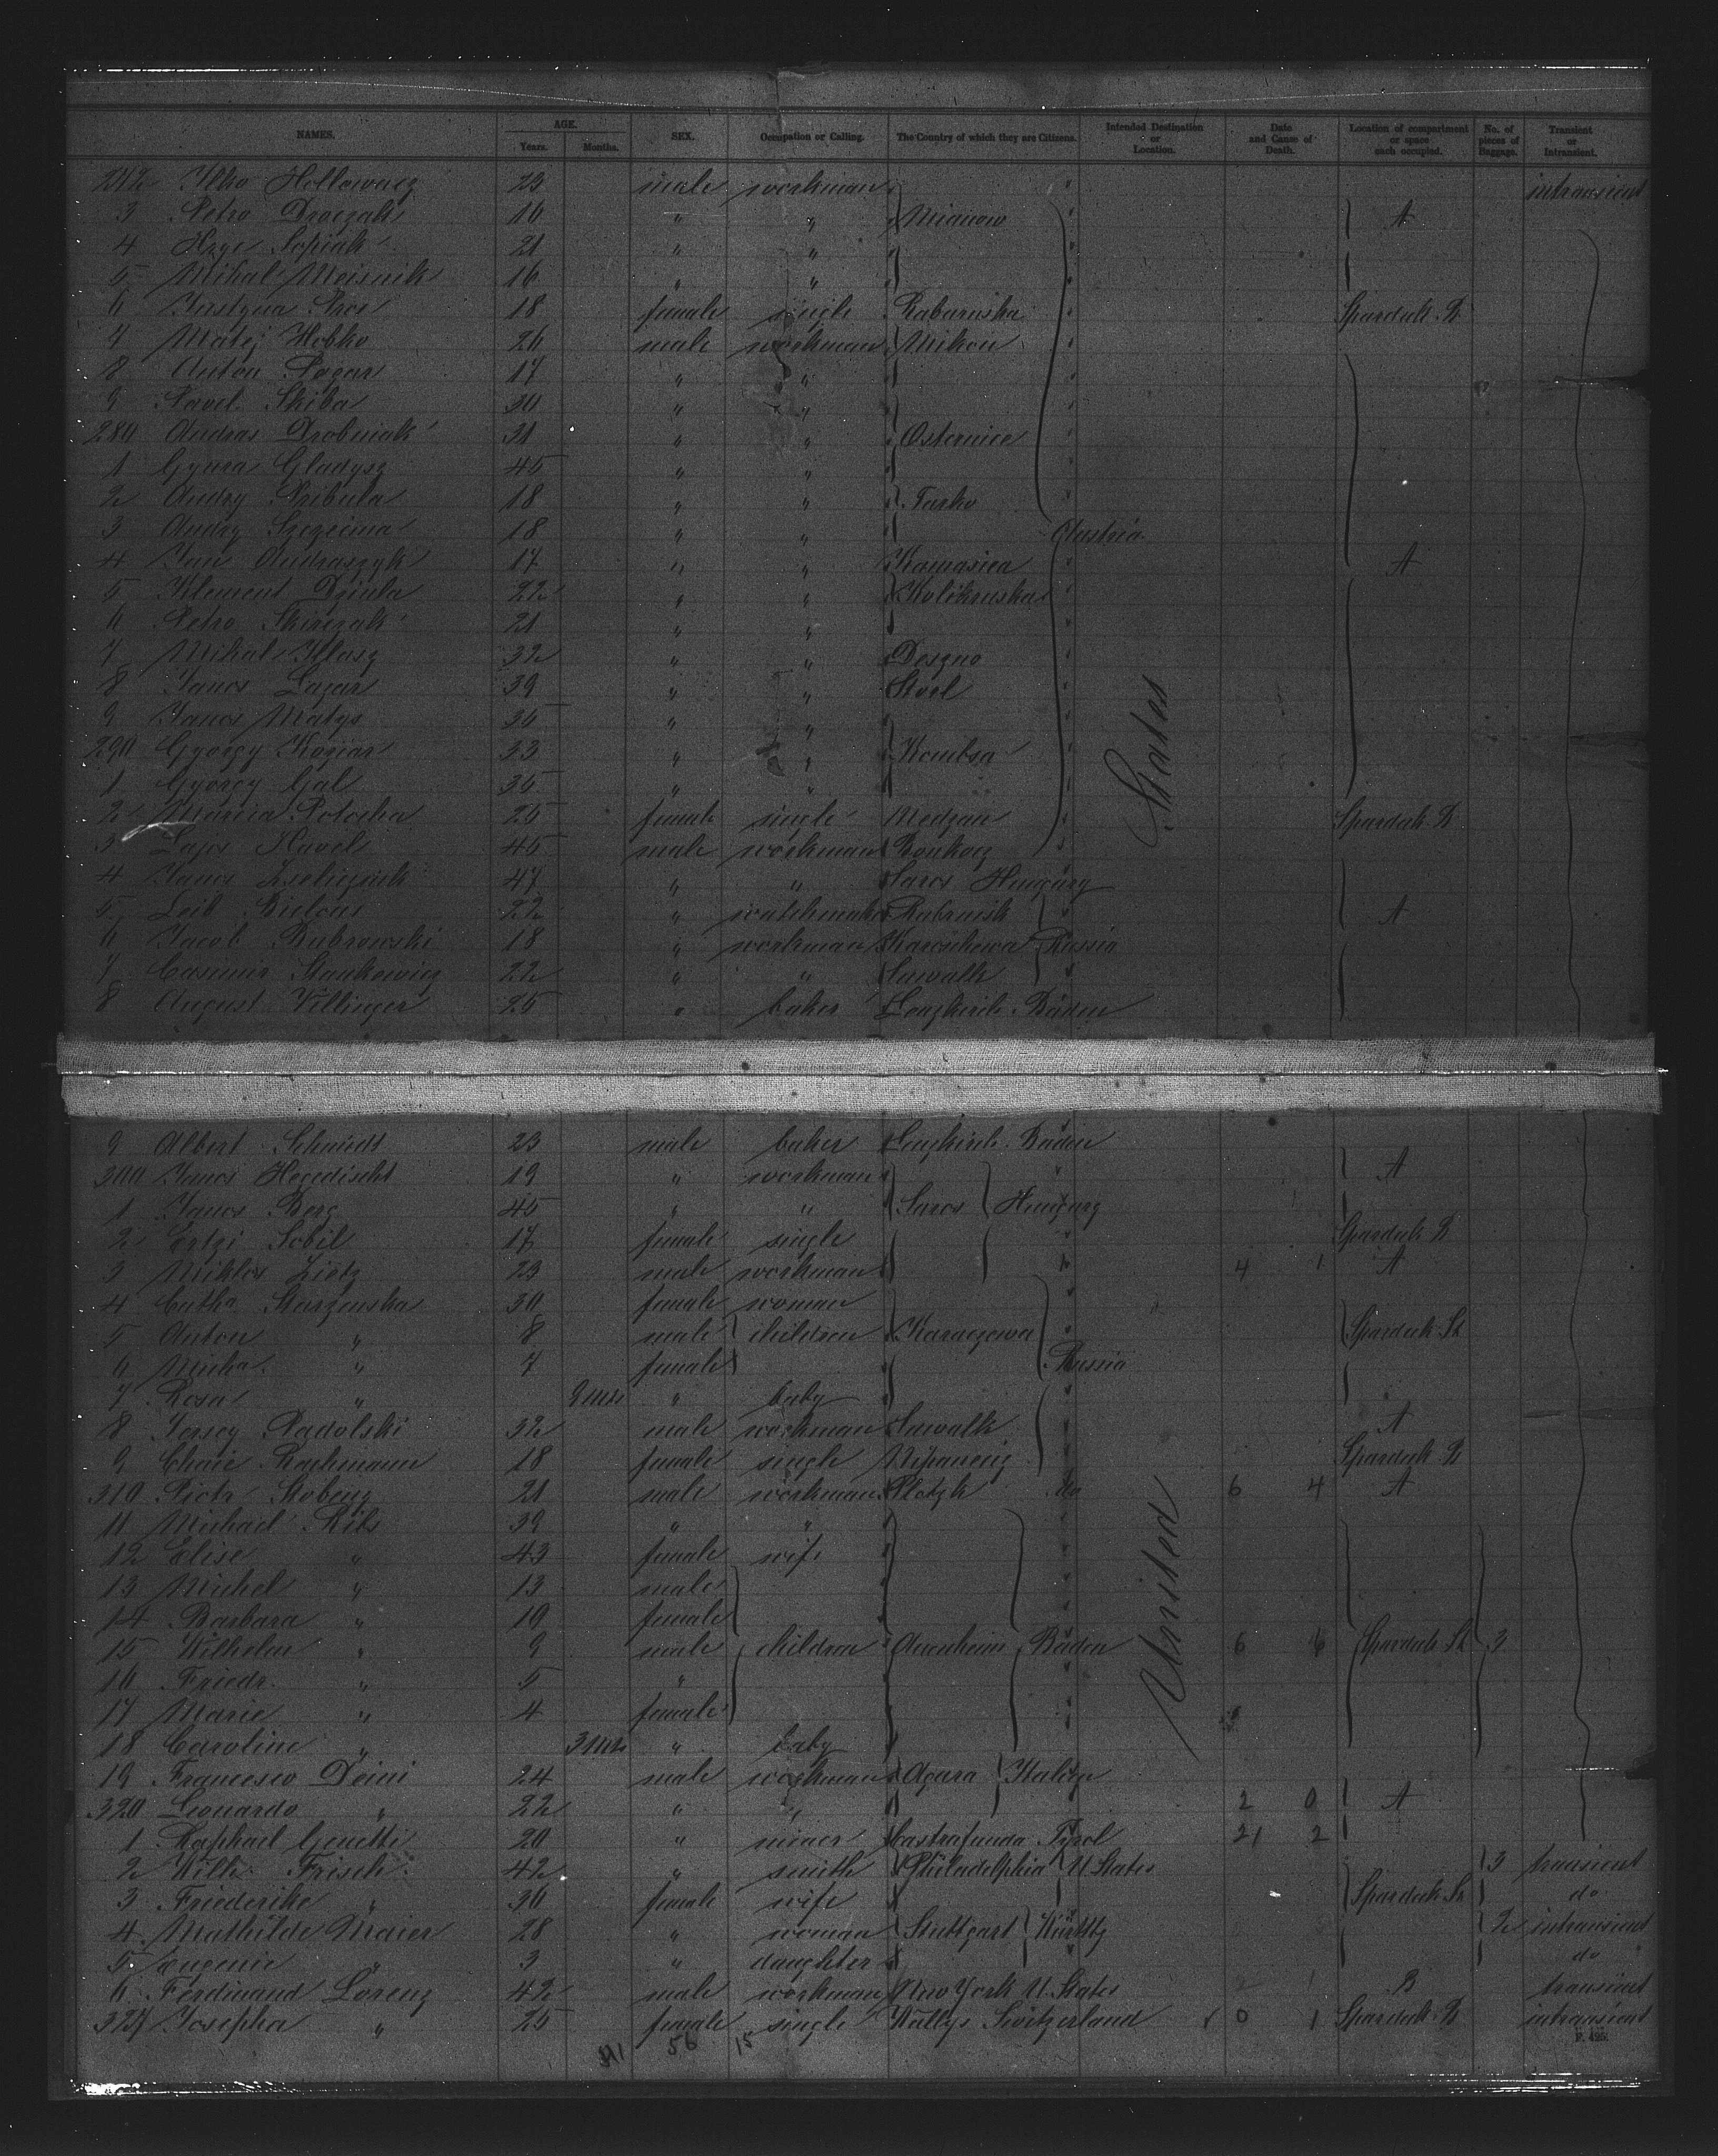 NAMES. AGE. Years. Months. SEX. Occupation or Calling. The Country of which they are Citizens. Intended Destination or Location. Date and Cause of Death. Location of compartment or space each occupied. No. of pieces of Baggage. Transient or Intransient.
272 Ilko Hollowacz 23 male workman intransient
3 Petro Droczak 16 " " Mianow A
4 Hryc Sopiak 21 " "
5 Mihal Meisnik 16 " "
6 Justyna Pros 18 female single Rabaruska Spardeck B
7 Matej Hobko 26 male workman Mikou
8 Anton Pagar 17 " "
9 Pavel Skiba 30 " "
280 Andras Drobniak 31 " " Osternice
1 Gyura Gladysz 45 " "
2 Andry Pribula 18 " " Tarko
3 Andry Szczecina 18 " " Austria
4 Jan Andraszyk 17 " " Kamasica A
5 Klement Dziula 22 " " Kolikruska
6 Petro Skirczak 21 " "
7 Mihal Klasz 32 " " Deszno
8 Janos Lazar 39 " " Stoel
9 Janos Matys 35 " "
290 György Kozjar 33 " " Kombsa
1 György Gal 35 " " States
2 Marcia Potocka 25 female single Medzan Spardeck B
3 Lajos Havel 45 male workman Ronkocz
4 Janos 47 " " Saros Hungary
5 Leib Bielous 22 " watchmaker Rubraisk A
6 Jacob Bubrowski 18 " workman Karoschewa Russia
7 Casimir Stankowicz 22 " " Suwalk
8 August Villinger 25 " baker Lenzkirch Baden
9 Albert Schmidt 23 male baker Lenzkirch Baden
300 Janos Hegedischt 19 " workman A
1 Janos Berg 45 " " Saros Hungary
2 Ertzi Sobil 17 female single Spardeck B
3 Miklos Zietz 23 male workman 4 1 A
4 Catha Starzenska 30 female woman
5 Anton " 8 male children Karaczewa Spardeck St
6 Micha. " 7 female Russia
7 Rosa " 9 mts " baby
8 Jersey Radolski 32 male workman Suwalk A
9 Chaie Rachmann 18 female single Spardeck B
310 Piotr Stobenz 21 male workman Plotzk do 6 4 A
11 Michael Kils 39 " "
12 Elise " 43 female wife
13 Michel " 13 male
14 Barbara " 10 female
15 Wilhelm " 9 male children Auenheim Baden United 6 6 Spardeck St 3
16 Friedr. " 5 "
17 Marie " 4 female
18 Caroline " 3 mts " baby
19 Francesco Deini 24 male workman Agara Italien
320 Leonardo " 22 " " 2 0 A
1 Raphael Genetti 20 " miner Castrafunda Tyrol 21 2
2 Wilh. Frisch 42 " smith Philadelphia U States 3 transient
3 Friederike " 30 female wife Spardeck St do
4 Mathilde Maier 28 " woman Stuttgart Württg 2 intransient
5 Eugenie " 3 " daughter do
6 Ferdinand Lorenz 42 male workman New York U. States B transient
327 Josepha " 25 female single Wallys Switzerland 0 1 Spardeck B intransient
41 56 15 F. 425.